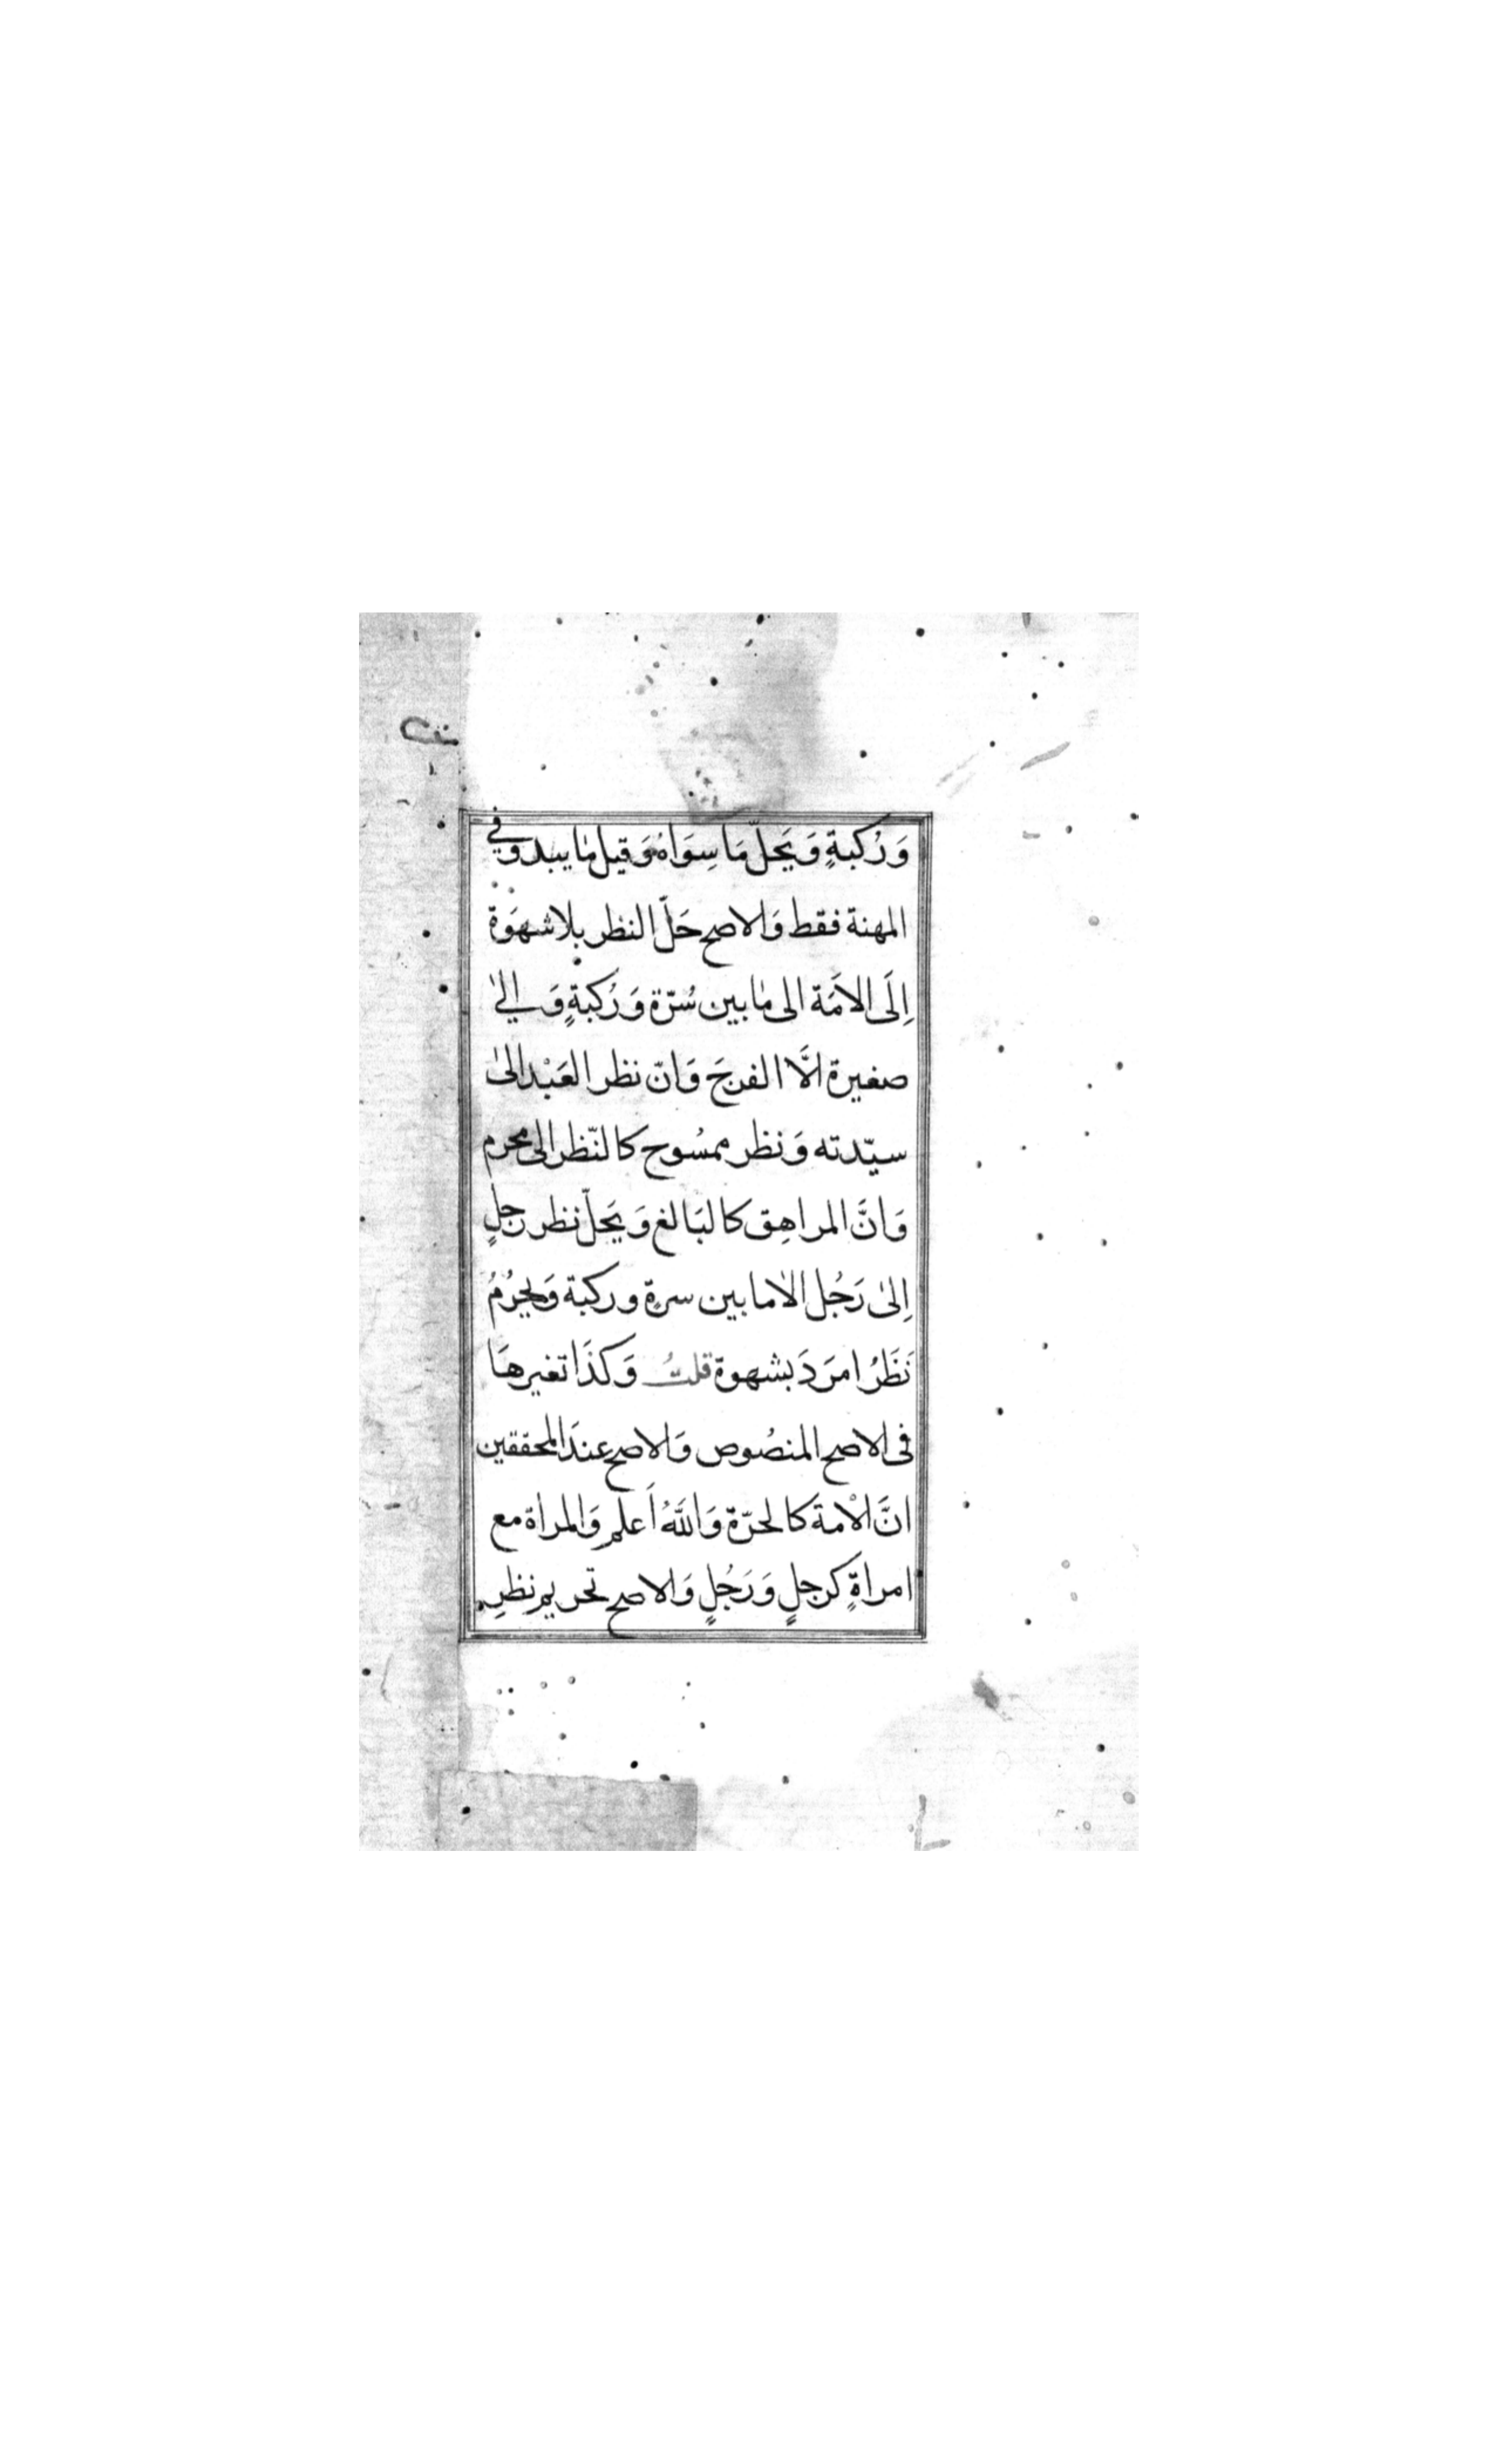 وَرُكبةٍ وَيَحلّ مَا سِوَاهُ وَقيل ما يبدو في
المهنة فقط وَالاصح حَلّ النظر بلا شهوَة
اِلَى الامَة الى ما بين سُرّة وَرُكبةٍ وَالىٰ
صغيرة الَّا الفرجَ وَانّ نظر العَبْد الىٰ
سيّدته وَنظر ممسُوح كالنّظر الى محرم
وَانَّ المراهِق كالبَالغ وَيَحلّ نظر رجلٍ
اِلىٰ رَجُل الا ما بين سرةٍ وركبة وَيحرُمُ
نَظَرُ امرَدَ بشهوة قلتُ وَكذَا تغيرهَا
فى الاصح المنصُوص وَالاصح عندَ المحققين
انَّ الاْمة كالحرّة وَاللّهُ اَعلم وَالمراة مع
امراةٍ كرجلٍ وَرَجُلٍ وَالاصح تحريم نظرِ